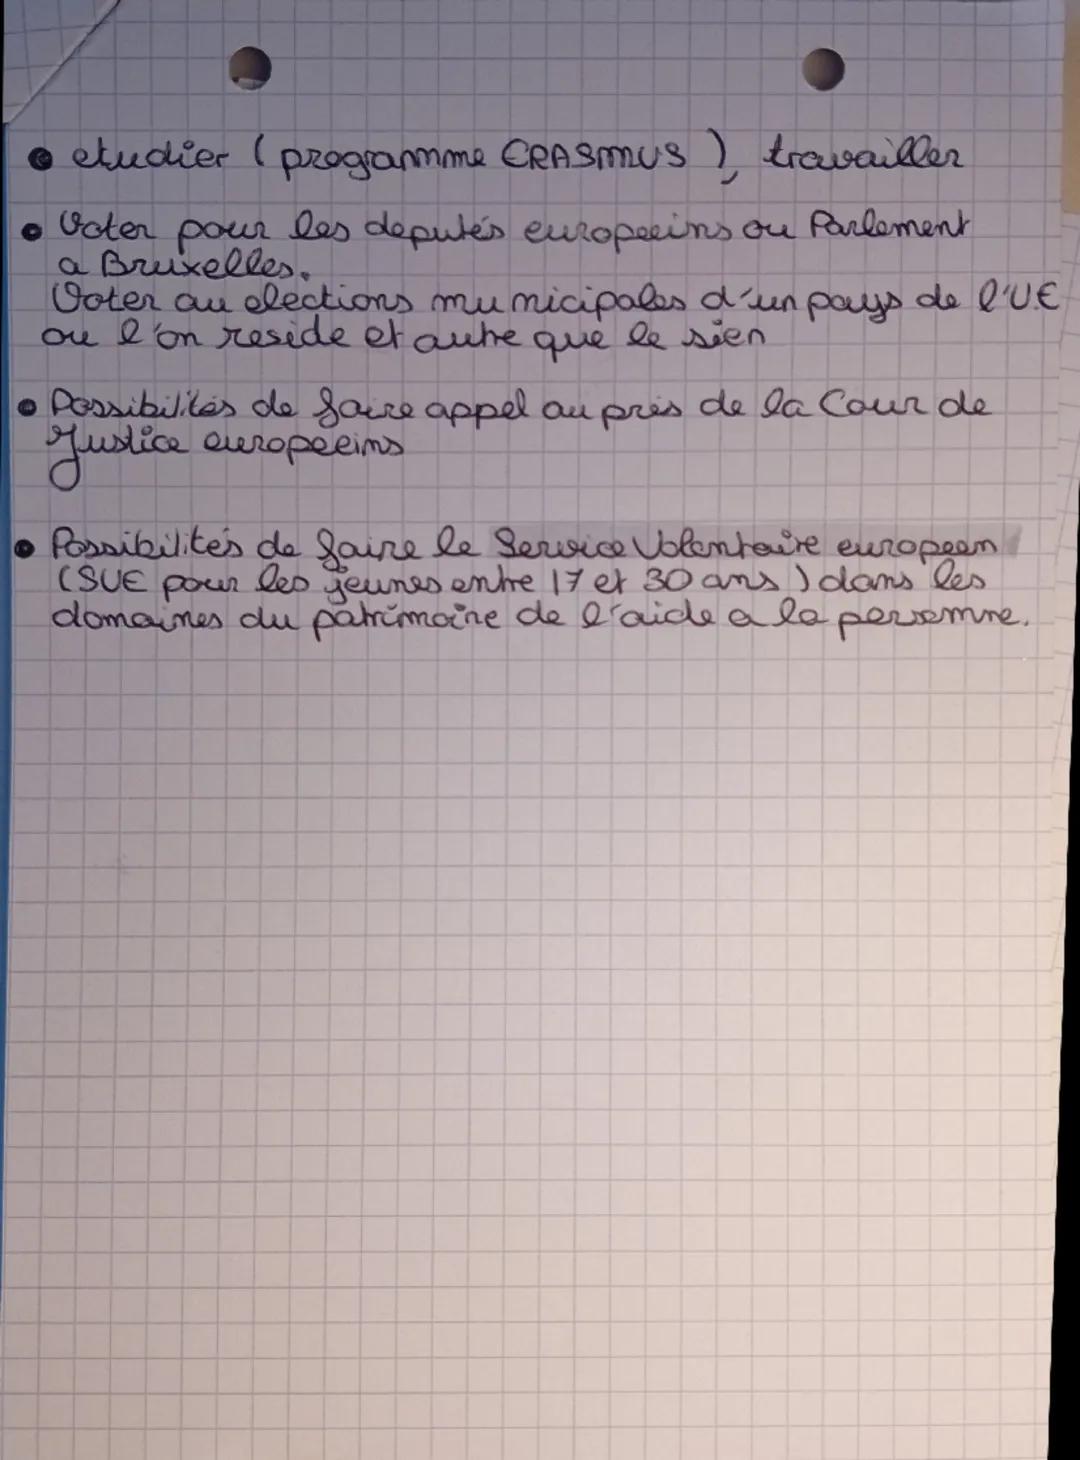 • etudier ( programmme ERASMUS ), travailler
• Voter pour les deputés europeeins ou Parlement
a Bruxelles.
Voter au elections municipales d'un pays de l'UE
ou l'on reside et autre que le sien
• Possibilités de faire appel au près de la Cour de
Justice europeeins
• Possibilités de faire le Service Volontaire europeen
(SUE pour les jeunes entre 17 et 30 ans ) dans les
domaines du patrimoine de l'aide a la personne.